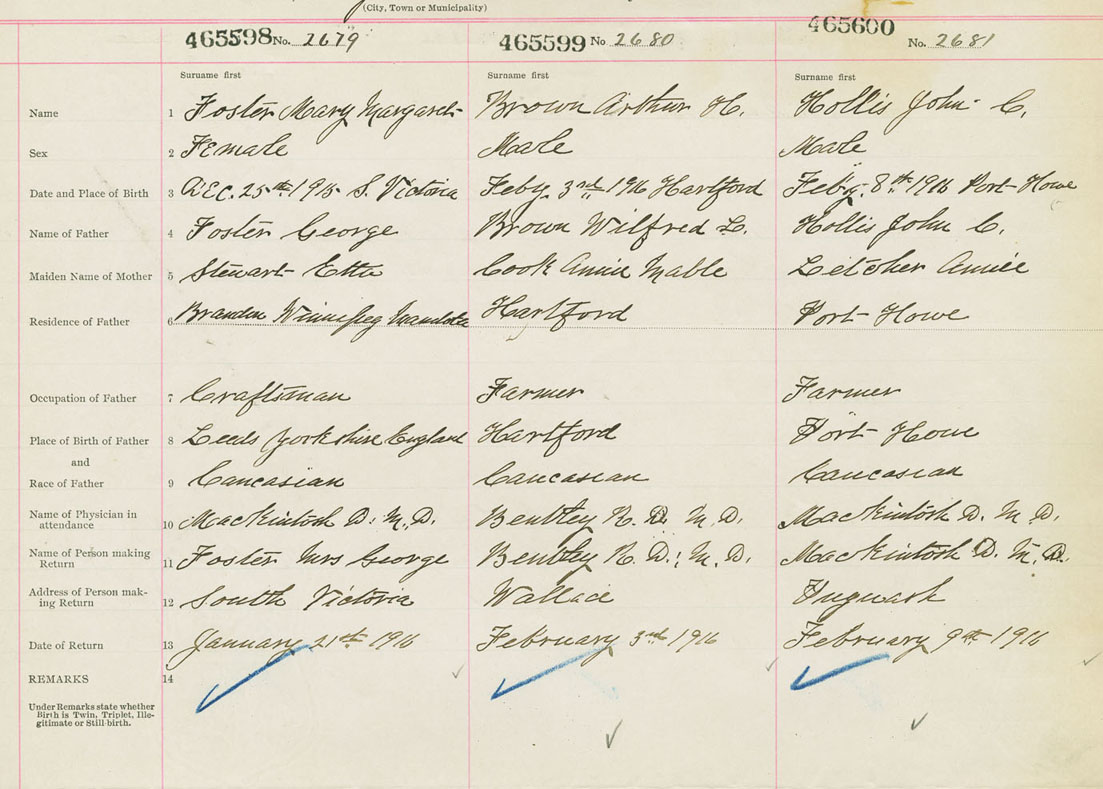 (City, Town or Municipality)
465598 No. 2679 465599 No 2680 465600 No. 2681
Surname first Surname first Surname first
Name 1 Foster Mary Margaret Brown Arthur H. Hollis John C.
Sex 2 Female Male Male
Date and Place of Birth 3 Dec. 25th 1915 S. Victoria Feby 3rd 1916 Hartford Feby. 8th 1916 Port Howe
Name of Father 4 Foster George Brown Wilfred L. Hollis John C.
Maiden Name of Mother 5 Stewart Etta Cook Annie Mable Letcher Annie
Residence of Father 6 Brandon Winnipeg Hartford Port Howe
Occupation of Father 7 Craftsman Farmer Farmer
Place of Birth of Father 8 Leeds Yorkshire England Hartford Port Howe
and
Race of Father 9 Caucasian Caucasian Caucasian
Name of Physician in
attendance 10 MacKintosh D. M. D. Bentley R. D. M. D. MacKintosh D. M. D.
Name of Person making
Return 11 Foster Mrs George Bentley R. D.; M. D. MacKintosh D. M. D.
Address of Person mak-
ing Return 12 South Victoria Wallace Pugwash
Date of Return 13 January 21st 1916 February 3rd 1916 February 9th 1916
REMARKS 14
Under Remarks state whether
Birth is Twin, Triplet, Ille-
gitimate or Still-birth.